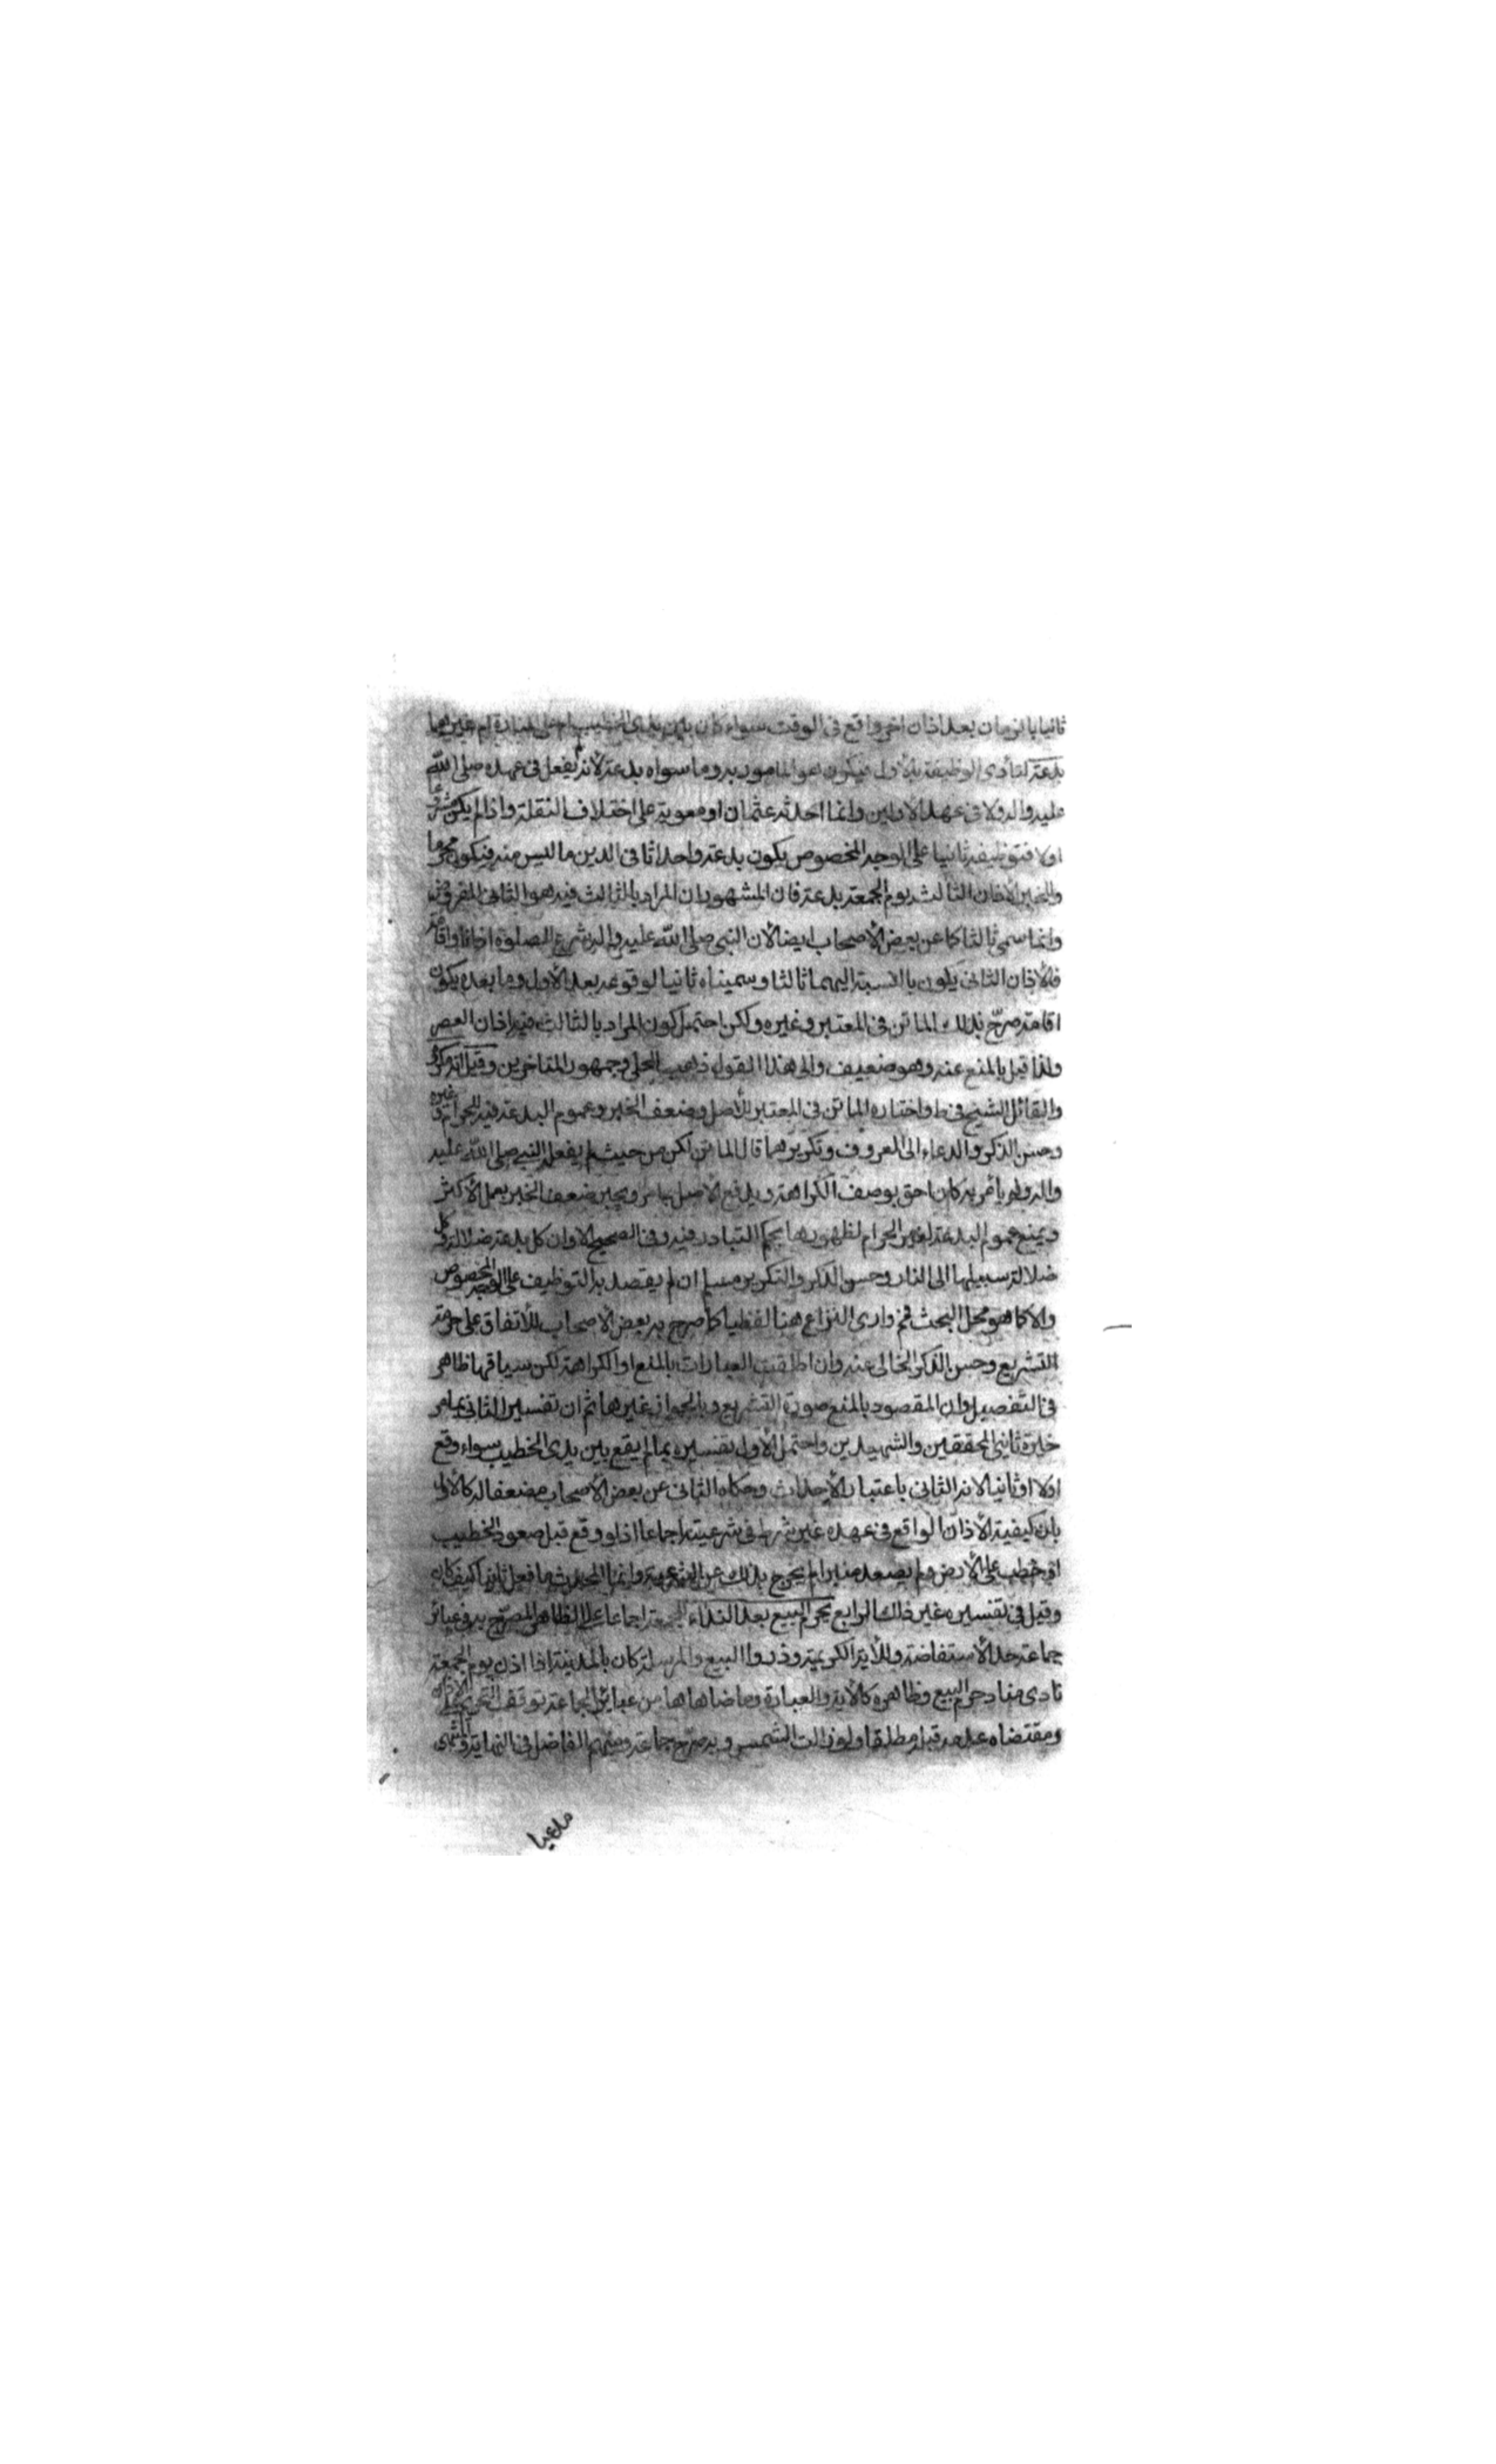 ثانيا بالزمان بعد اذان اخر واقع فى الوقت سواء كان بين يدى الخطيب ام على المنارة ام غيرهما
بدعة لتأدى الوظيفة بالاول فيكون هو المامور به وما سواه بدعة لانه لم يفعل فى عهده صلى الله
عليه واله ولا فى عهد الاولين وانما احدثه عثمان او معوية على اختلاف النقلة واذا لم يكن مشروعا
اولا فتوظيفه ثانيا على الوجه المخصوص يكون بدعة واحداثا فى الدين ما ليس منه فيكون محرما
وللخبر الاذان الثالث يوم الجمعة بدعة فان المشهور ان المراد بالثالث فيه هو الثانى المفروض
وانما سمى ثالثا كما عن بعض الاصحاب ايضا لان النبى صلى الله عليه واله شرع للصلوة اذانا واقامة
فالاذان الثانى يكون بالنسبة اليهما ثالثا وسميناه ثانيا لوقوعه بعد الاول وما بعده يكون
اقامة صرح بذلك الماتن فى المعتبر وغيره ولكن احتمل كون المراد بالثالث فيه اذان العصر
ولذا قيل بالمنع عنه وهو ضعيف والى هذا القول ذهب الحلى وجمهور المتاخرين وقيل انه مكروه
والقائل الشيخ فى ط واختاره الماتن فى المعتبر للاصل وضعف الخبر وعموم البدعة فيه للحرام وغيره
وحسن الذكر والدعاء الى المعروف وتكريرهما قال الماتن لكن من حيث لم يفعله النبى صلى الله عليه
واله ولم يامر به كان احق بوصف الكراهة ويدفع الاصل بما مر ويجبر ضعف الخبر بعمل الاكثر
ويمنع عموم البدعة لغير الحرام لظهورها بحكم التبادر فيه وفى الصحيح الا وان كل بدعة ضلالة وكل
ضلالة سبيلها الى النار وحسن الذكر والتكرير مسلم ان لم يقصد به التوظيف على الوجه المخصوص
والا كما هو محل البحث فم وارى النزاع هنا لفظيا كما صرح به بعض الاصحاب للاتفاق على حرمة
التشريع وحسن الذكر الخالى عنه وان اطلقت العبارات بالمنع او الكراهة لكن سياقها ظاهر
فى التفصيل وان المقصود بالمنع صورة التشريع وبالجواز غيرها ثم ان تفسير الثانى بما مر
خيرة ثانى المحققين والشهيدين واحتمل الاول تفسيره بما لم يقع بين يدى الخطيب سواء وقع
اولا او ثانيا لانه الثانى باعتبار الاحداث وحكاه الثانى عن بعض الاصحاب مضعفا له كالاول
بان كيفية الاذان الواقع فى عهده غير شرط فى شرعيته اجماعا اذ لو وقع قبل صعود الخطيب
او خطب على الارض ولم يصعد منبرا لم يخرج بذلك عن الشرعية وانما المحدث ما فعل ثانيا كيف كان
وقيل فى تفسيره غير ذلك الرابع يحرم البيع بعد النداء للجمعة اجماعا على الظاهر المصرح به فى عبائر
جماعة حد الاستفاضة وللاية الكريمة وذروا البيع والمرسلة كان بالمدينة اذا اذن يوم الجمعة
نادى مناد حرم البيع وظاهره كالاية والعبارة وما ضاهاها من عبائر الجماعة توقف التحريم على الاذان
ومقتضاه عدمه قبله مطلقا ولو زالت الشمس وبه صرح جماعة ومنهم الفاضل فى النهاية والمنتهى
مدعيا